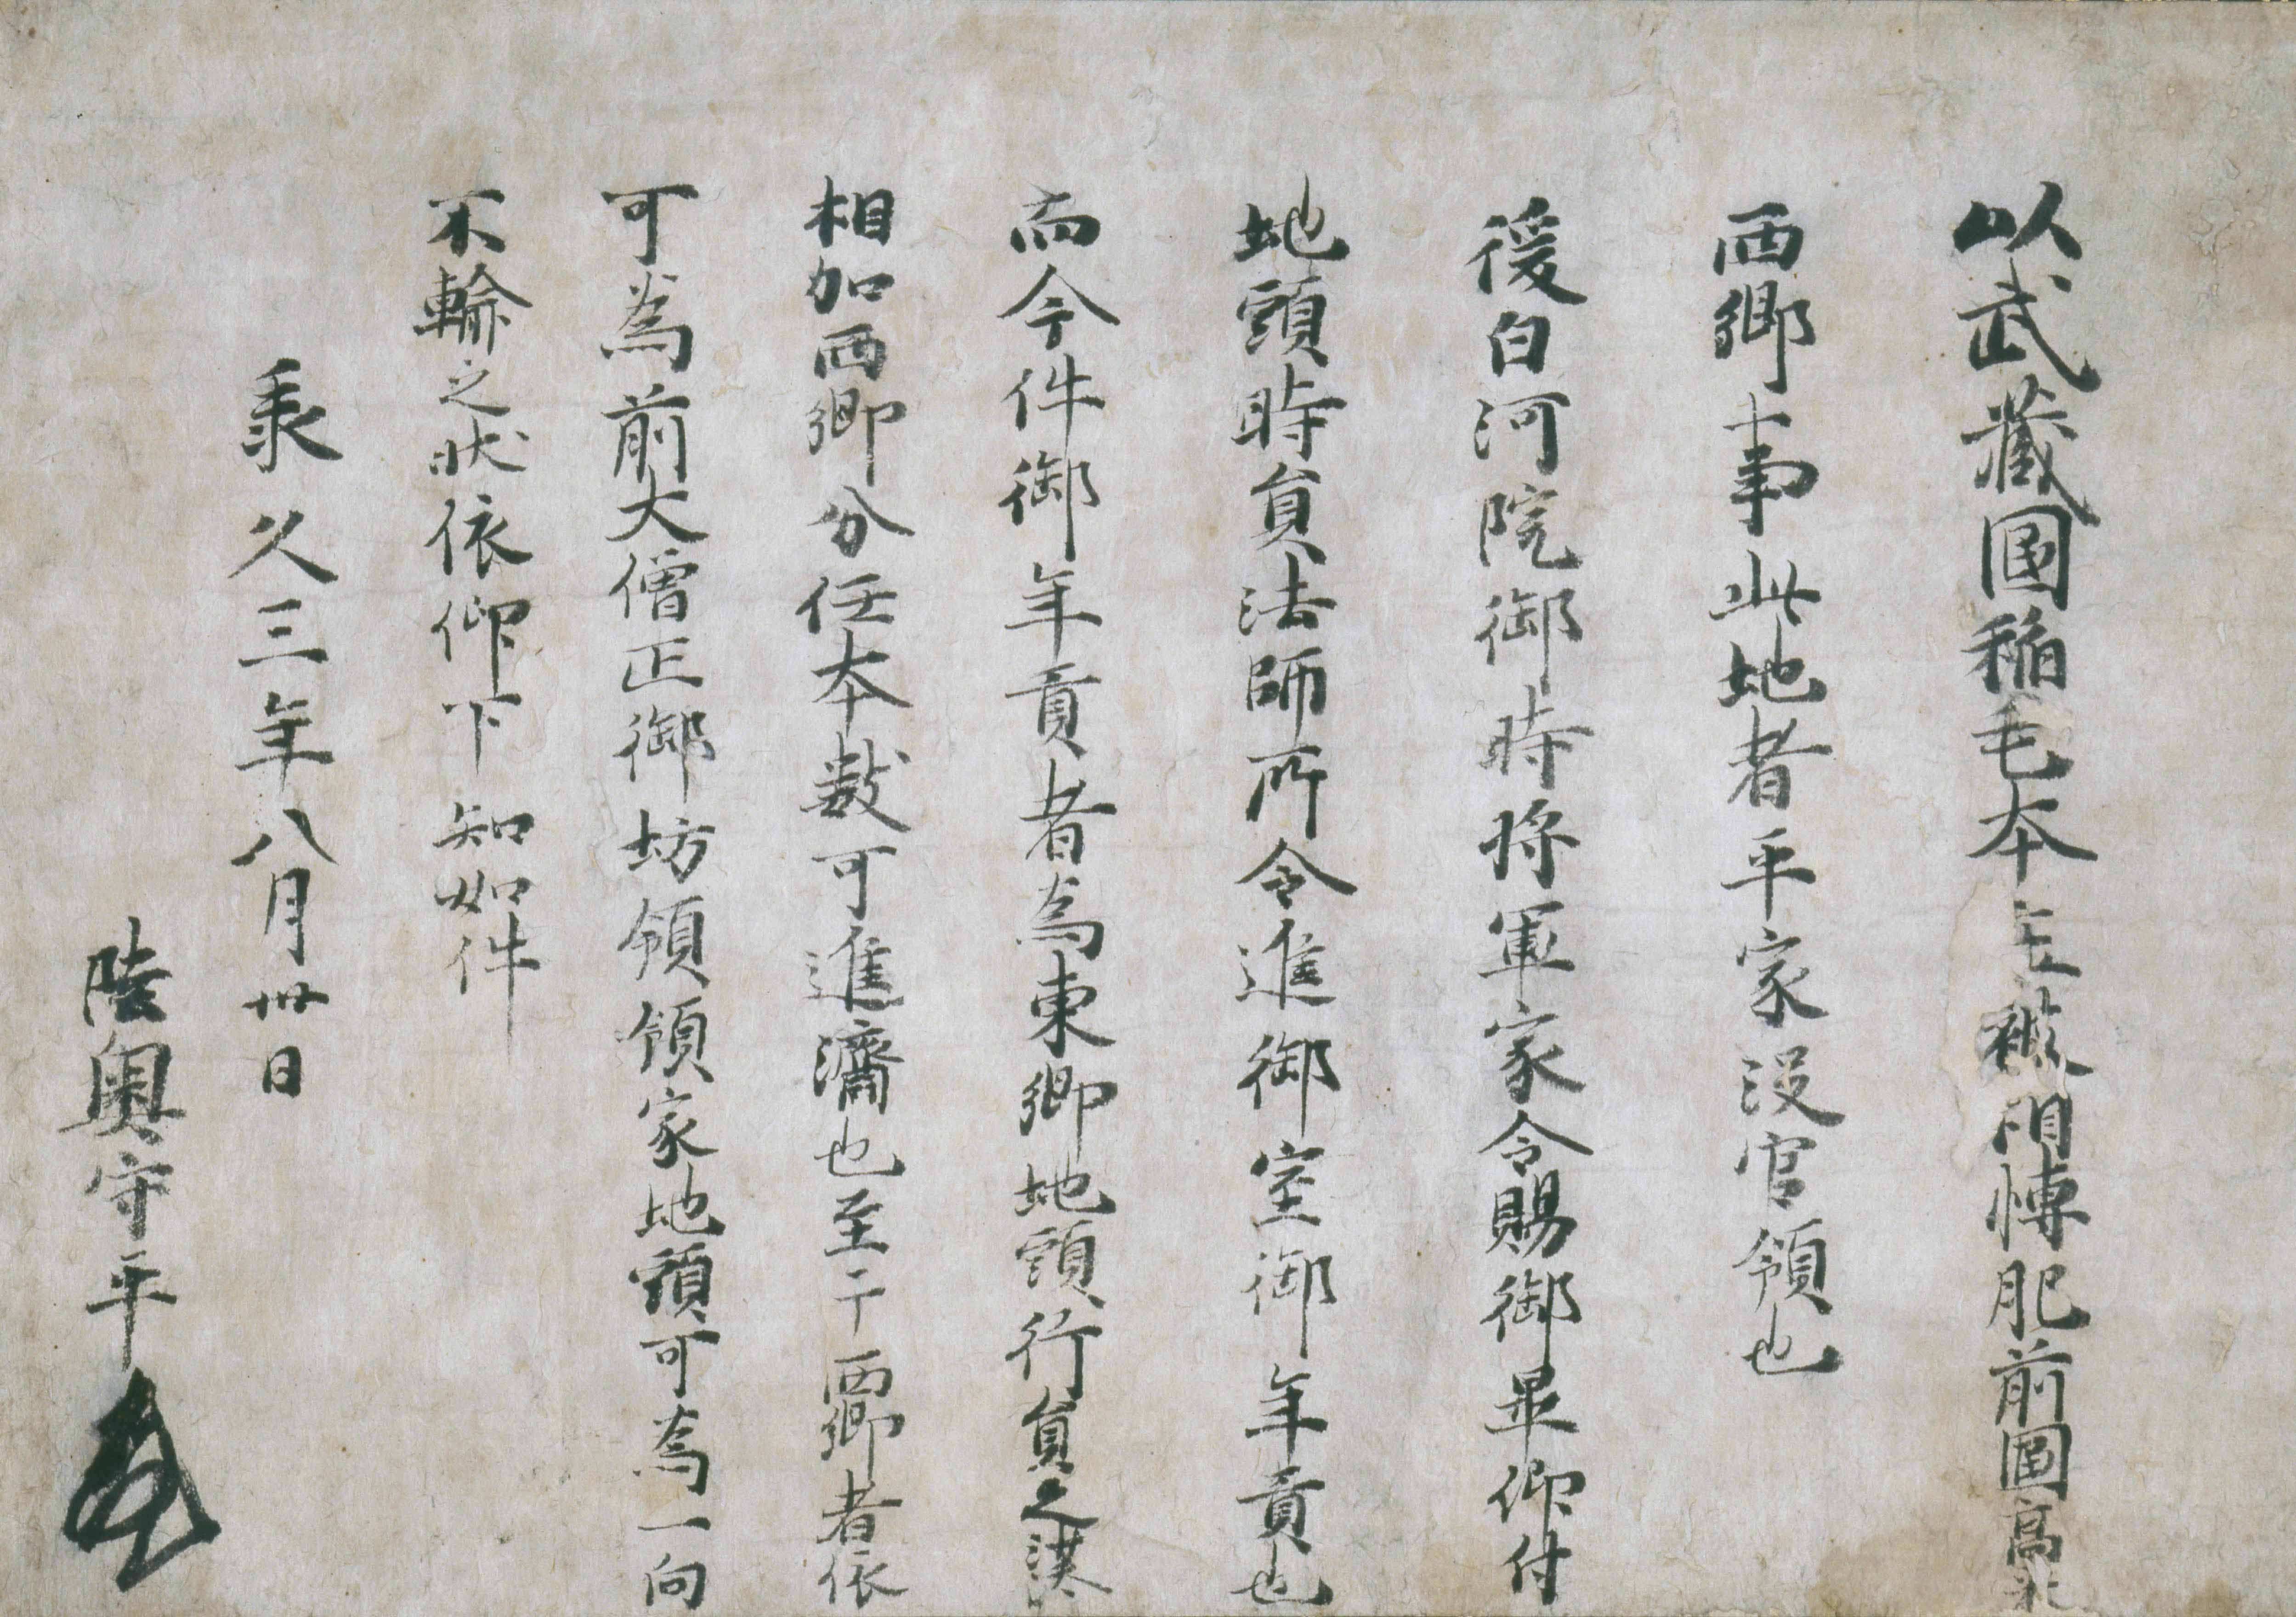 以武蔵國稲毛本主被相博肥前國高来
西郷事此地者平家没官領也
後白河院御時将軍家令賜御畢仰付
地頭時員法師所令進御室御年貢也
而今件御年貢者為東郷地頭行員之沙汰
相加西郷分任本数可進濟也至于西郷者依
可為前大僧正御坊領領家地頭可為一向
不輸之状依仰下知如件
承久三年八月卅日
陸奥守平